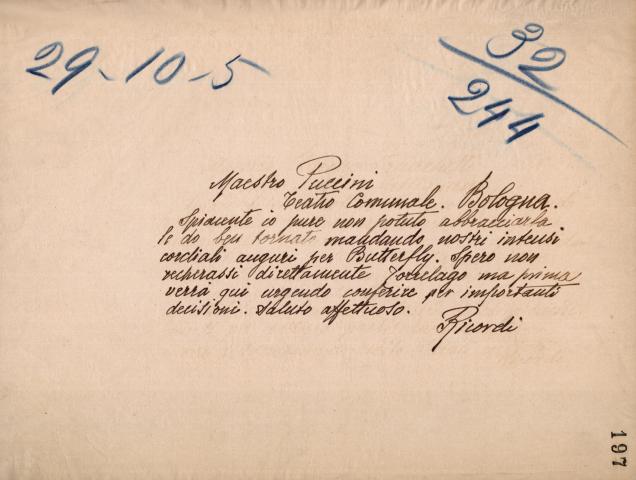 29-10-5
32
244
Maestro Puccini
Teatro Comunale. Bologna.
Spiacente io pure non potuto abbracciarla
le do ben tornato mandando nostri intensi
cordiali auguri per Butterfly. Spero non
recherassi direttamente Torrelago ma prima
verrà qui urgendo conferire per importanti
decisioni. Saluto affettuoso.
Ricordi
197